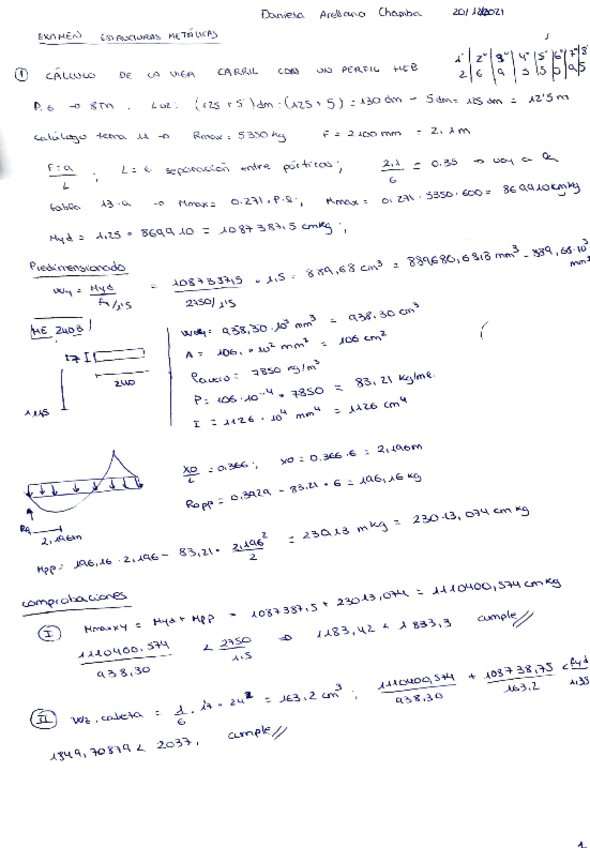 Daniela Arellano Chamba 20/12/2021
EXAMEN ESTRUCTURAS METÁLICAS
1º 2º 3º 4º 5º 6º 7º 8º
2 6 9
① CÁLCULO DE LA VIGA CARRIL CON UN PERFIL HEB
P.G → 8TN. Luz: (125 + 5) dm = (125 + 5) = 130 dm - 5dm = 125 dm = 12'5 m
Catálogo tema 11 → Rmax = 5350 kg F = 2100 mm = 2.1m
F = a / L ; L = 6 separación entre pórticos; 2.1 / 6 = 0.35 → voy a la
tabla 13.a → Mmax = 0.271.P.l; Mmax = 0.271 · 5350 · 600 = 869910 cmkg
Myd = 1.25 · 869910 = 1087387.5 cmkg;
Predimensionado
Wy = Myd / fy/1'5 = · 1.5 = 889,68 cm³ = 889680,6818 mm³ - 889,68·10³ mm³
2750/1'5
HE 240B
17 I
240
115
Wely = 938,30·10³ mm³ = 938.30 cm³
A = 106. · 10² mm² = 106 cm²
ρacero = 7850 kg/m³
P = 106·10⁻⁴ · 7850 = 83,21 kg/me.
I = 1126 · 10⁴ mm⁴ = 1126 cm⁴
X0 / L = 0.366; X0 = 0.366·6 = 2,196m
Rapp = 0,3929 - 83.21 · 6 = 196,16 kg
RA
2,196m
Mpp = 196.16 · 2,196 - 83,21 · 2,196² / 2 = 230,13 mkg = 23013,074 cm kg
Comprobaciones
Ⓘ Mmaxxy = Myd + Mpp = 1087387,5 + 23013,074 = 1110400,574 cmkg
1110400.574 / 938,30 < 2750 / 1.5 ⇒ 1183,42 < 1833,3 cumple//
Ⅱ Wz.cabeza = 1 / 6 · 17 · 24² = 163.2 cm³; 1110400,574 / 938,30 + 108738,75 / 163,2 < fyd
1849,70879 < 2037, cumple//
1